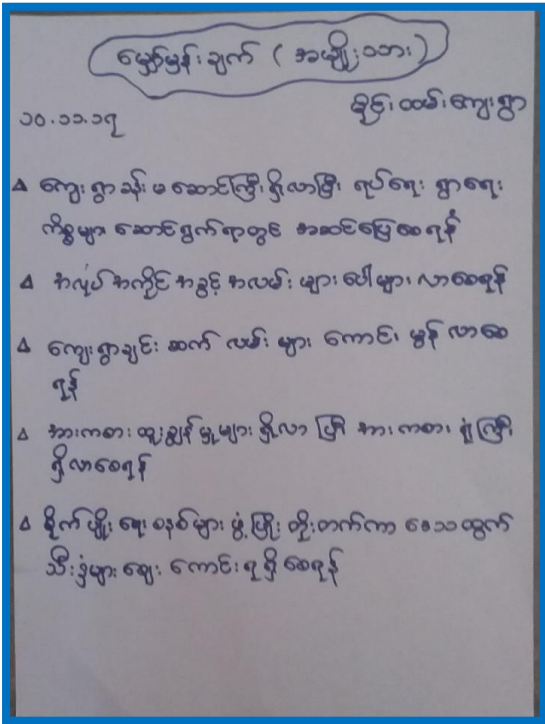 မျှော်မှန်းချက် ( အမျိုးသား )
နိုင်းထမ်းကျေးရွာ
၁၀.၁၁.၁၇
ကျေးရွာခန်းမဆောင်ကြီးရှိလာပြီး ရပ်ရေး ရွာရေး
ကိစ္စများ ဆောင်ရွက်ရာတွင် အဆင်ပြေစေရန်
အလုပ်အကိုင်အခွင့် အလမ်းများပေါများလာစေရန်
ကျေးရွာချင်းဆက် လမ်းများ ကောင်းမွန်လာစေ
ရန်
အားကစားထူးချွန်မှုများရှိလာပြီး အားကစားရုံကြီး
ရှိလာစေရန်
စိုက်ပျိုးရေးစနစ်များ ဖွံ့ဖြိုးတိုးတက်ကာ ဒေသထွက်
သီးနှံများဈေးကောင်းရရှိစေရန်